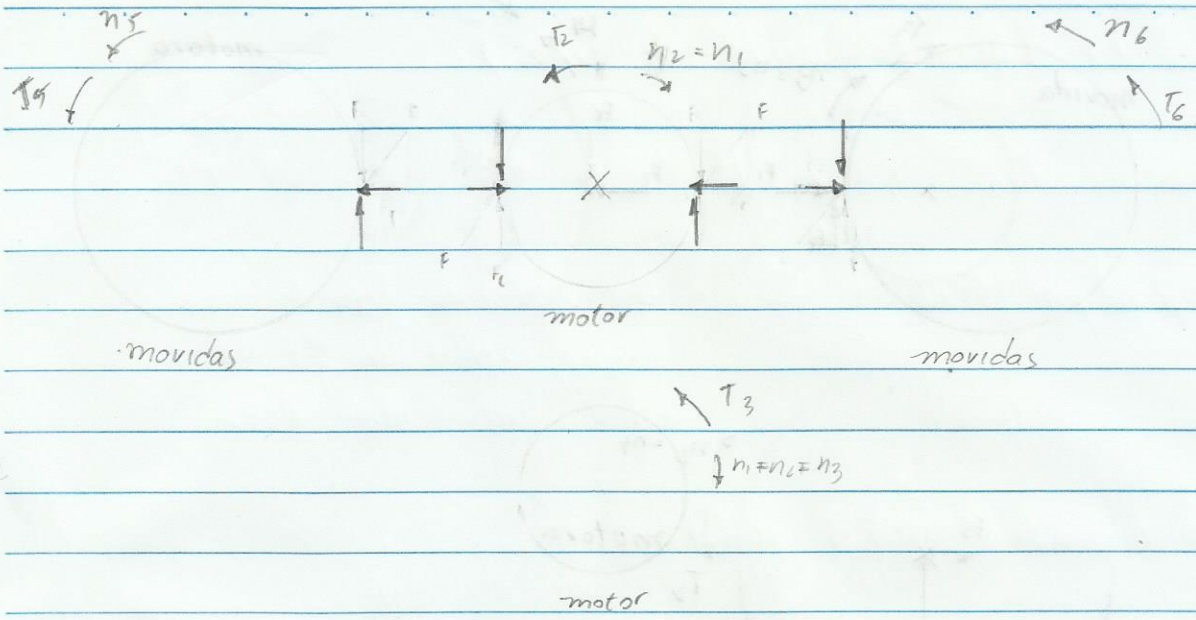 n5
T2
n2 = n1
n6
T5
F
T6
F
motor
movidas
movidas
T3
n1=n2=n3
motor